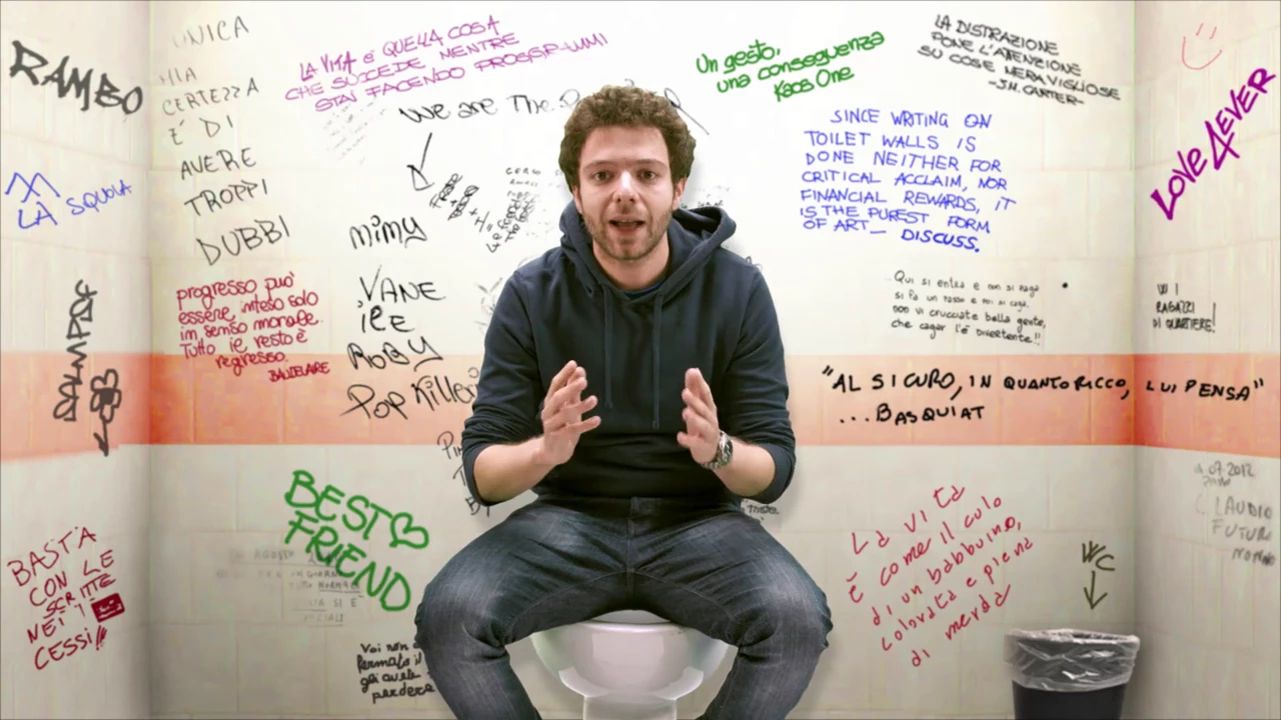 RAMBO
LÀ SQUOLA
BASTA
CON LE
SCRITTE
NEI
CESSI!
UNICA
MIA
CERTEZZA
E' DI
AVERE
TROPPI
DUBBI
progresso può
essere inteso solo
in senso morale.
Tutto il resto è
regresso.
BAUDELAIRE
LA VITA è QUELLA COSA
CHE SUCCEDE MENTRE
STAI FACENDO PROGRAMMI
We are The
mimy
VANE
ilE
RoBy
Pop Killer
BEST
FRIEND
Voi non
fermato il
perdere
Un gesto,
una conseguenza
Kaos One
LA DISTRAZIONE
PONE L'ATENZIONE
SU COSE MERAVIGLIOSE
-J.M. CARTER-
SINCE WRITING ON
TOILET WALLS IS
DONE NEITHER FOR
CRITICAL ACCLAIM, NOR
FINANCIAL REWARDS, IT
IS THE PUREST FORM
OF ART_ DISCUSS.
Qui si entra e non si paga
si fa un passo e poi si caga,
non vi crucciate bella gente,
che cagar l'è divertente!!
"AL SICURO, IN QUANTO RICCO, LUI PENSA"
...BASQUIAT
La vita
È come il culo
di un babbuino,
colorata e piena
di merda
WC
LOVE 4EVER
W I
RAGAZZI
DI QUARTIERE!
07.2012
CLAUDIO
FUTURI